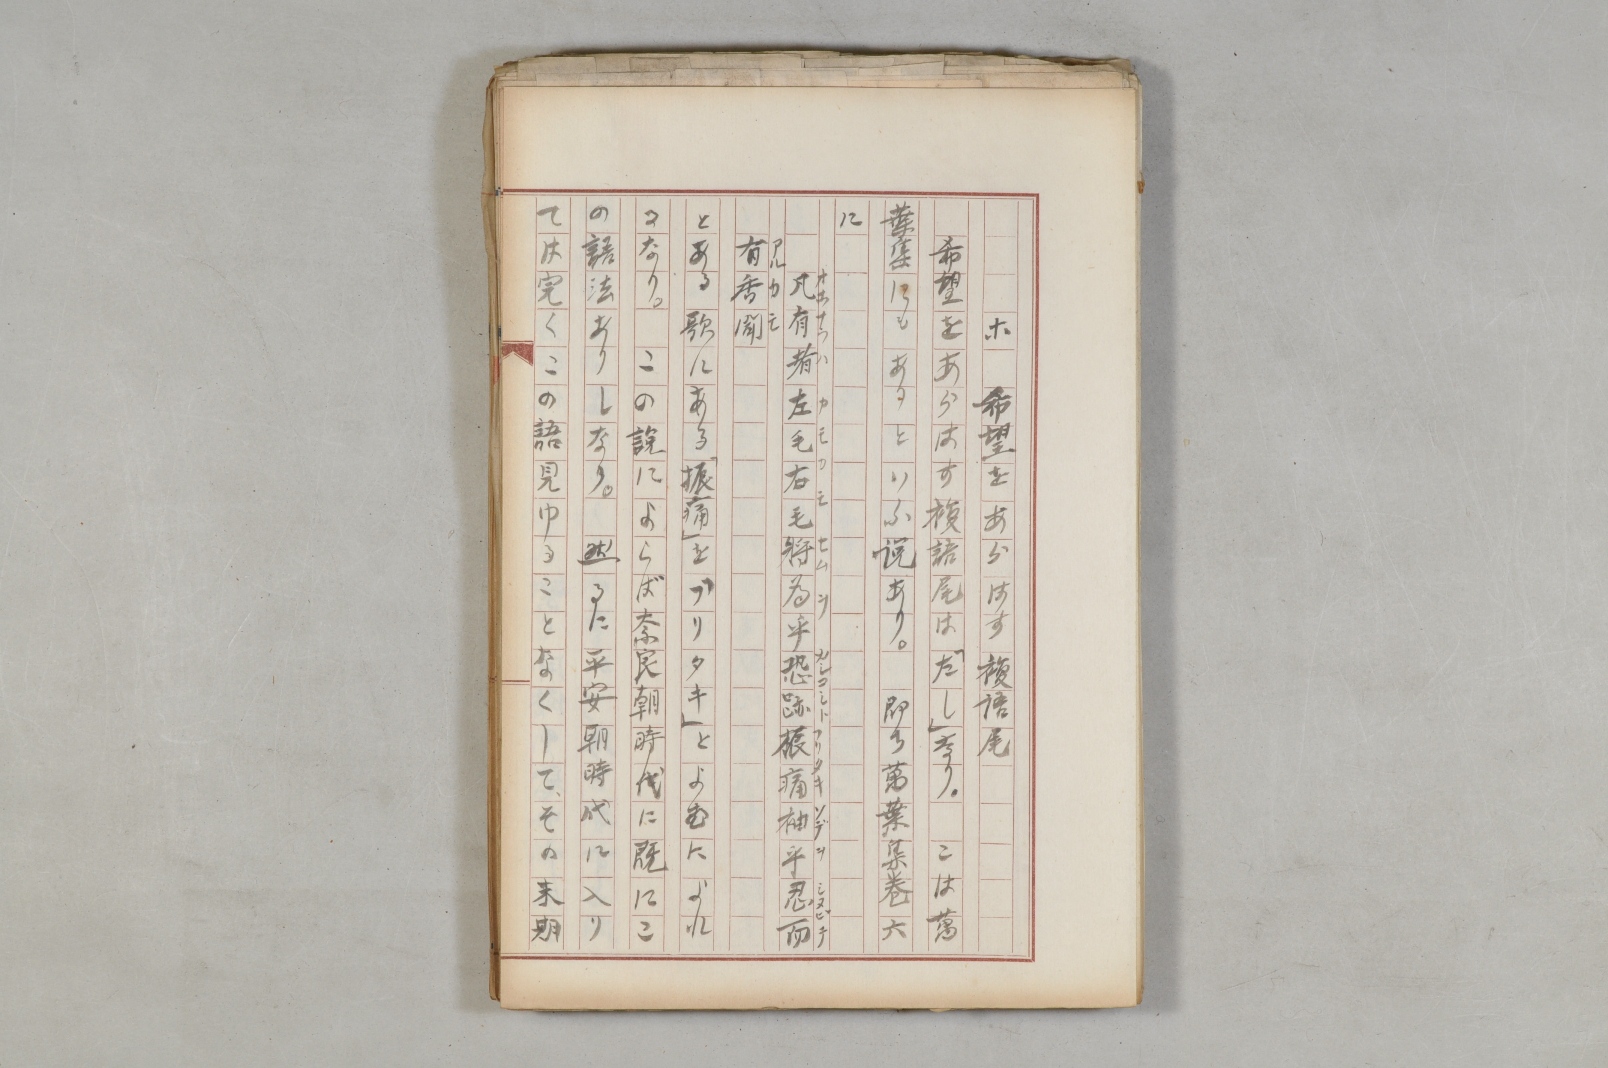 ホ　希望をあらはす複語尾
希望をあらはす複語尾は「たし」なり。こは萬
葉集にもあるといふ説あり。即ち萬葉集巻六
に
凡有者左毛右毛将為乎恐跡振痛袖乎忍而
オホナラバ カモカモセムヲ カシコミト フリタキソデヲ シヌビテ
有香聞
アルカモ
とある歌にある「振痛」を「フリタキ」とよむによれ
るなり。この説によらば奈良朝時代に既にこ
の語法ありしなり。然るに平安朝時代に入り
ては完くこの語見ゆることなくして、その末期